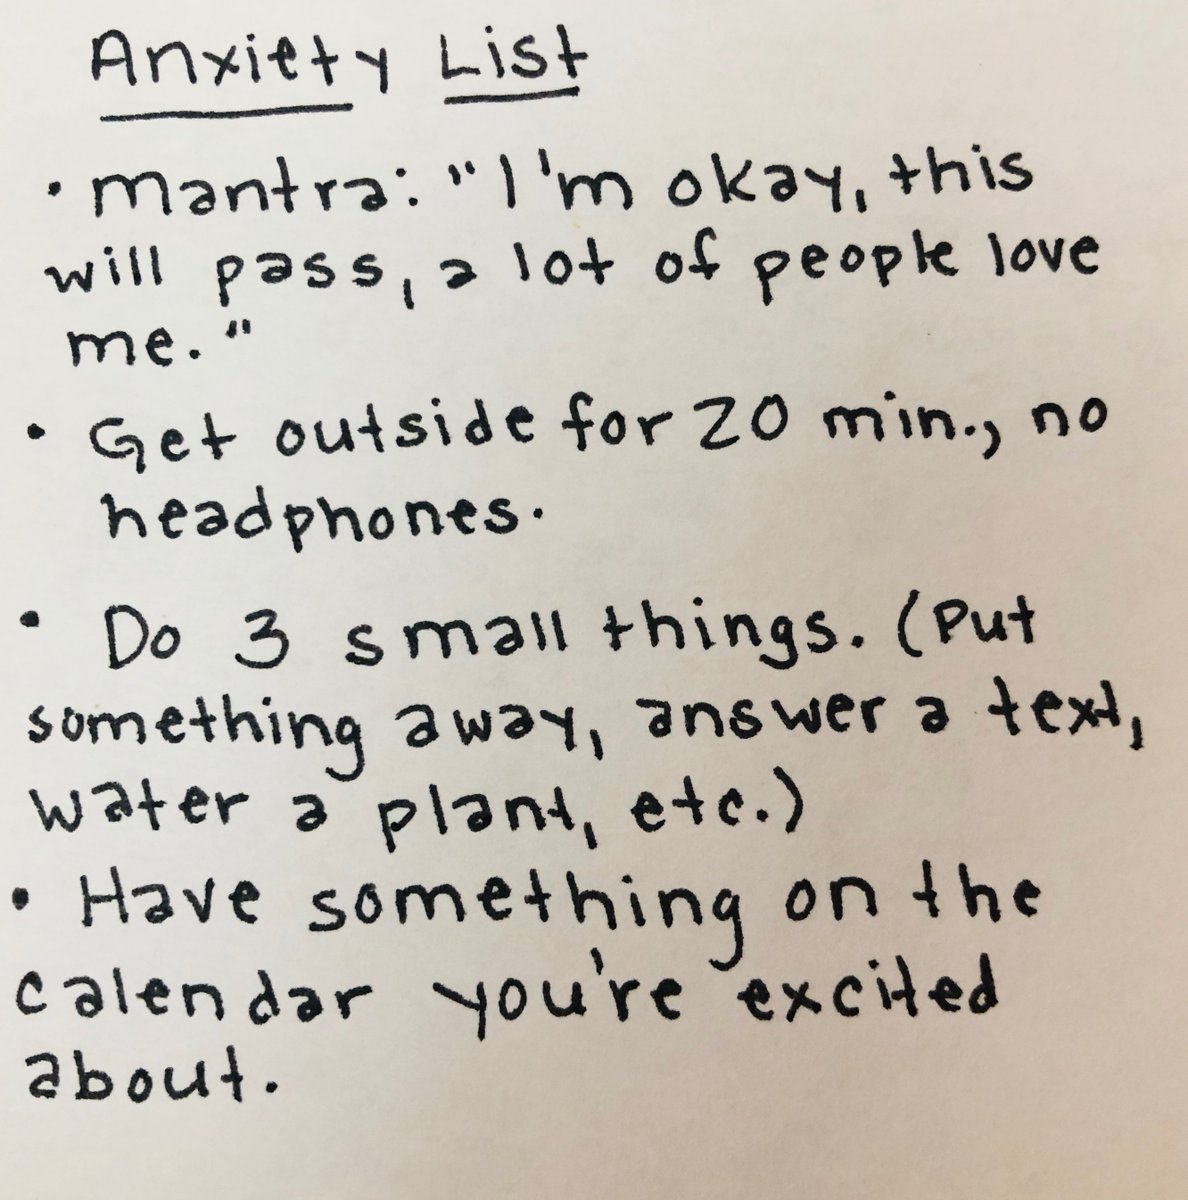 Anxiety List
• Mantra: "I'm okay, this
will pass, a lot of people love
me."
• Get outside for 20 min., no
headphones.
• Do 3 small things. (Put
something away, answer a text,
water a plant, etc.)
• Have something on the
calendar you're excited
about.